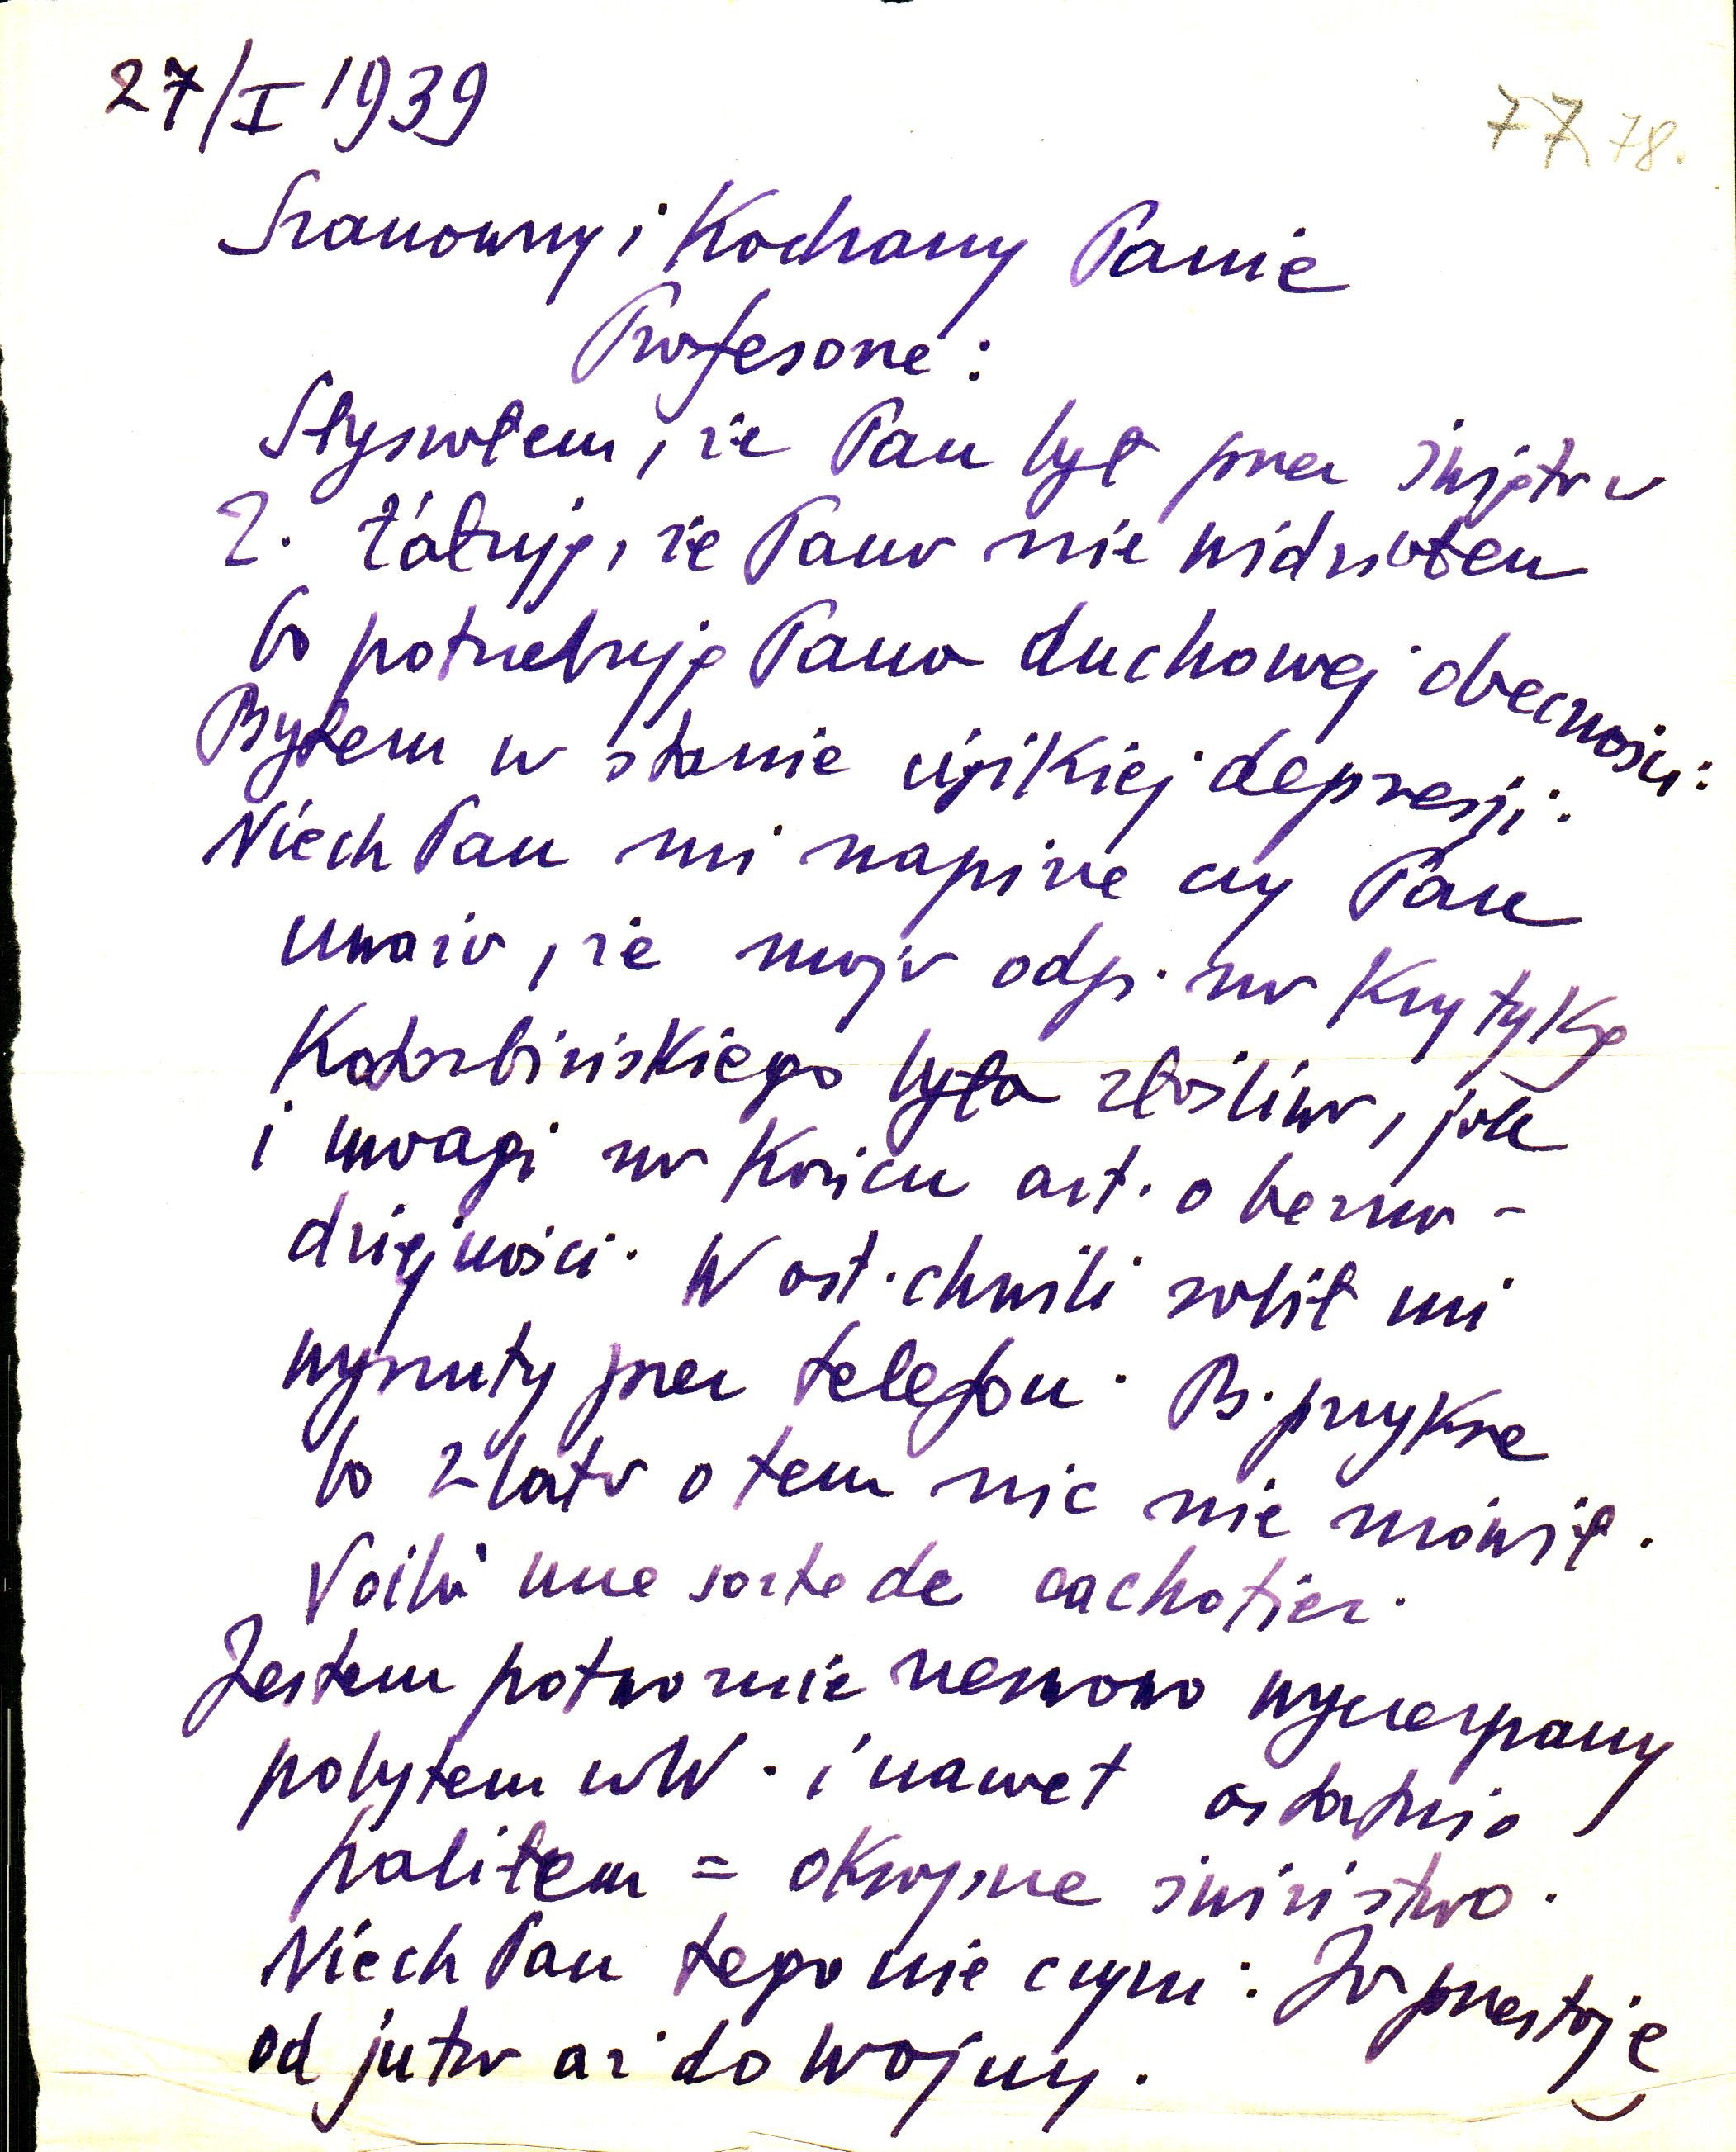 27/I 1939
77 78.
Szanowny i Kochany Panie
Profesorze:
Słyszałem, że Pan był przez święta w
Z. Żałuję, że Pana nie widziałem
bo potrzebuję Pana duchowej obecności:
Byłem w stanie ciężkiej depresji:
Niech Pan mi napisze czy Pan
uważa, że moja odp. na krytykę
Kotarbińskiego była złośliwa, jak
i uwagi na końcu art. o bezna-
dziejności. W ost. chwili robił mi
wyrzuty przez telefon. B. przykre
bo 2 lata o tem nic nie mówił.
Voilà une sorte de cachotier.
Jestem potwornie nerwowo wyczerpany
pobytem w W. i nawet ostatnio
paliłem = okropne świństwo.
Niech Pan tego nie czyni: Ja przestaję
od jutra aż do wojny.